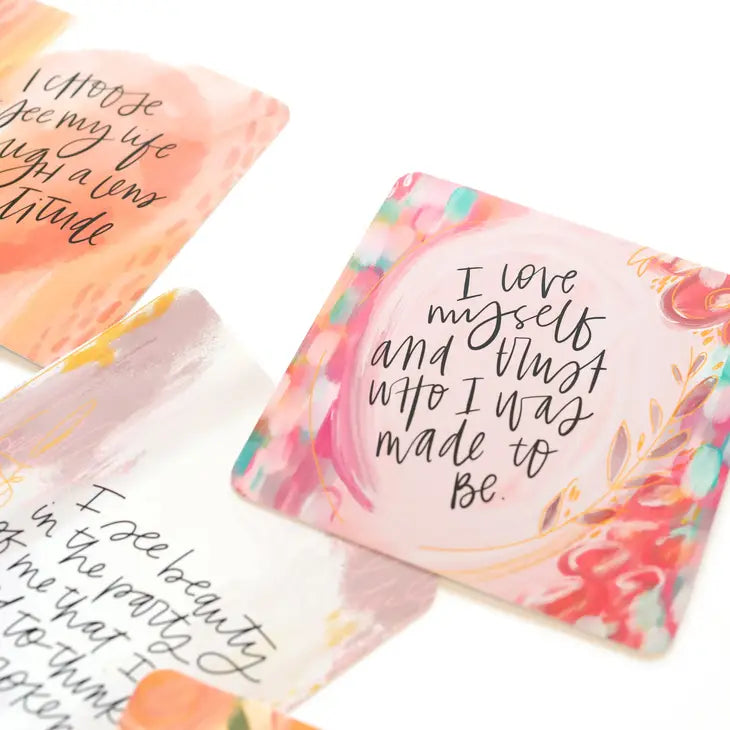 I choose
see my life
ugh a lens
titude
I love
myself
and trust
who I was
made to
Be.
I see beauty
in the parts
of me that I
d to think
oken